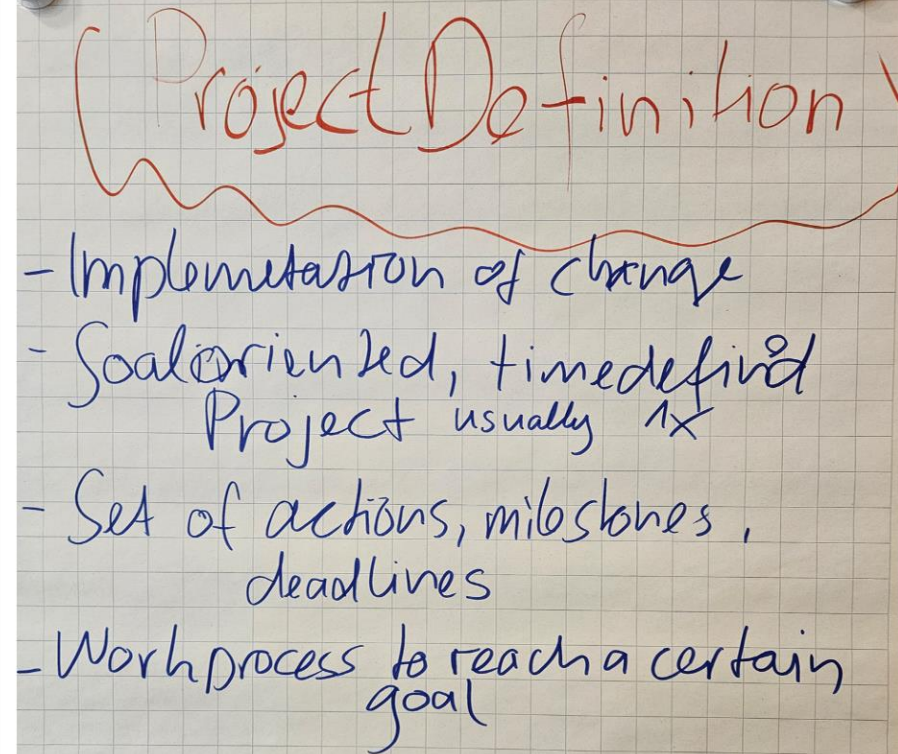 Project Definition
- Implemetation of change
- Goaloriented, timedefined
Project usually 1x
- Set of actions, milestones,
deadlines
- Workprocess to reach a certain
goal